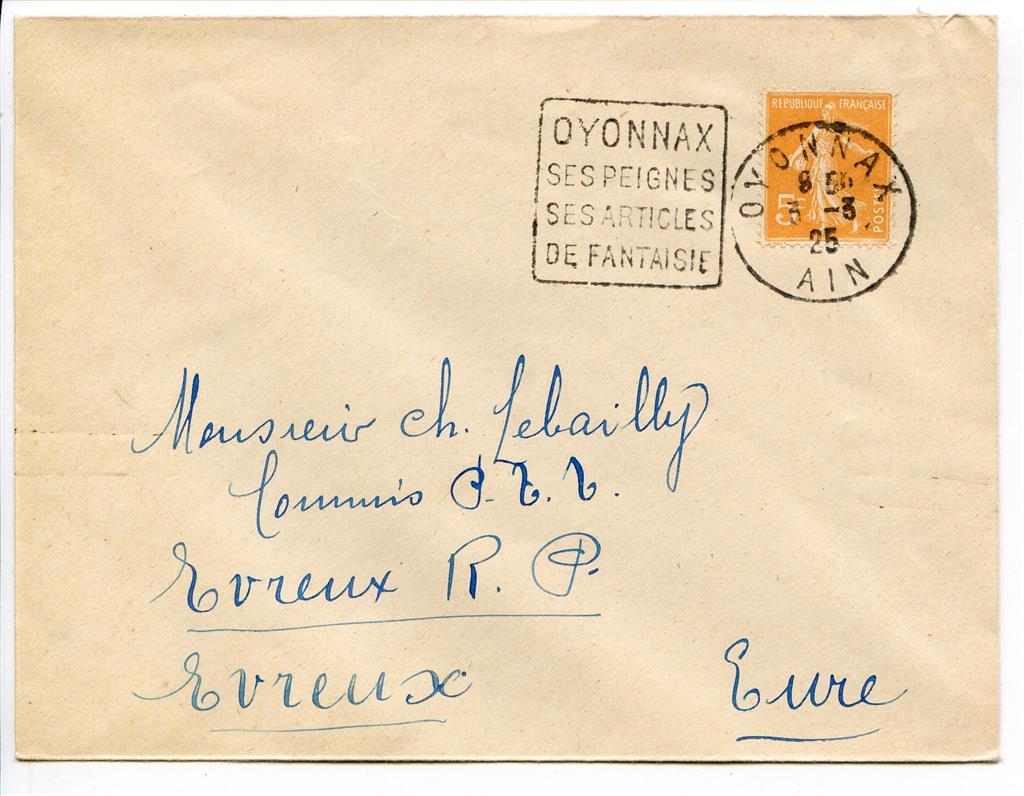 OYONNAX
SES PEIGNES
SES ARTICLES
DE FANTAISIE
REPUBLIQUE FRANÇAISE
5c
POSTES
OYONNAX
8 50
3 -3
25
AIN
Monsieur Ch. Lebailly
Commis P.T.T.
Evreux R. P.
Evreux Eure